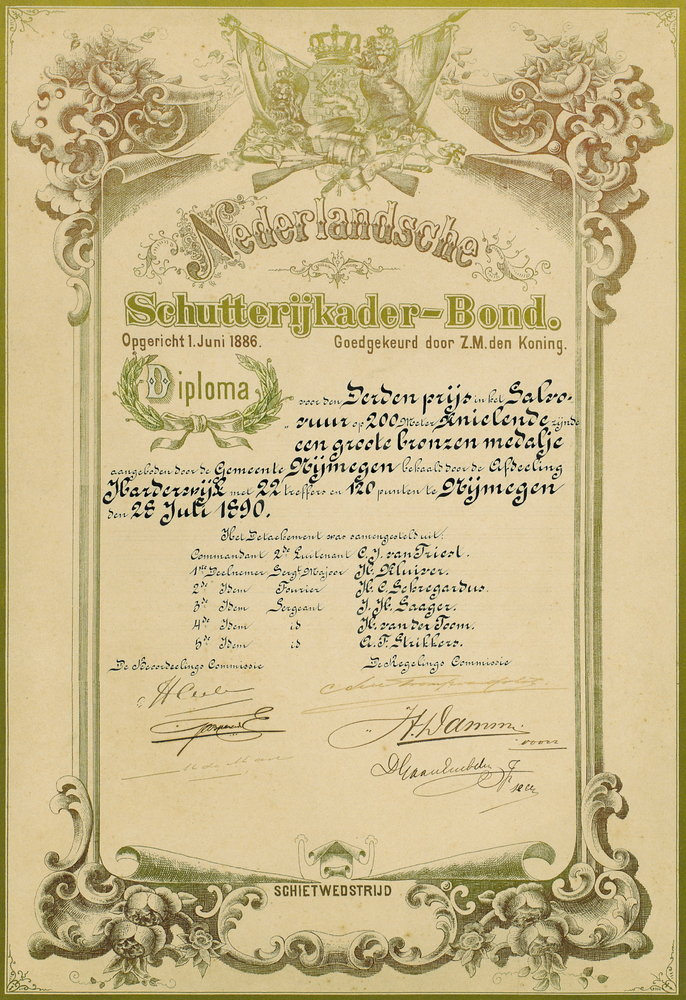 Nederlandsche
Schutterijkader-Bond.
Opgericht 1. Juni 1886. Goedgekeurd door Z.M. den Koning.
Diploma
voor den Derden prijs in het Salvo-
vuur op 200 Meter Knielende zijnde
een groote bronzen medalje
aangeboden door de Gemeente Nijmegen behaald door de Afdeeling
Harderwijk met 22 treffers en 120 punten te Nijmegen
den 28 Juli 1890.
Het Detachement was samengesteld uit:
Commandant 2de Luitenant C. J. van Triest.
1ste Deelnemer Sergt Majoor H. Kluiver.
2de Idem Fourier H. C. Schregardus.
3de Idem Sergeant J. H. Saager.
4de Idem id H. van der Toom.
5de Idem id A. F. Strikkers.
De Beoordeelings Commissie De Regelings Commissie
H. Damm
voorz
secr
SCHIETWEDSTRIJD